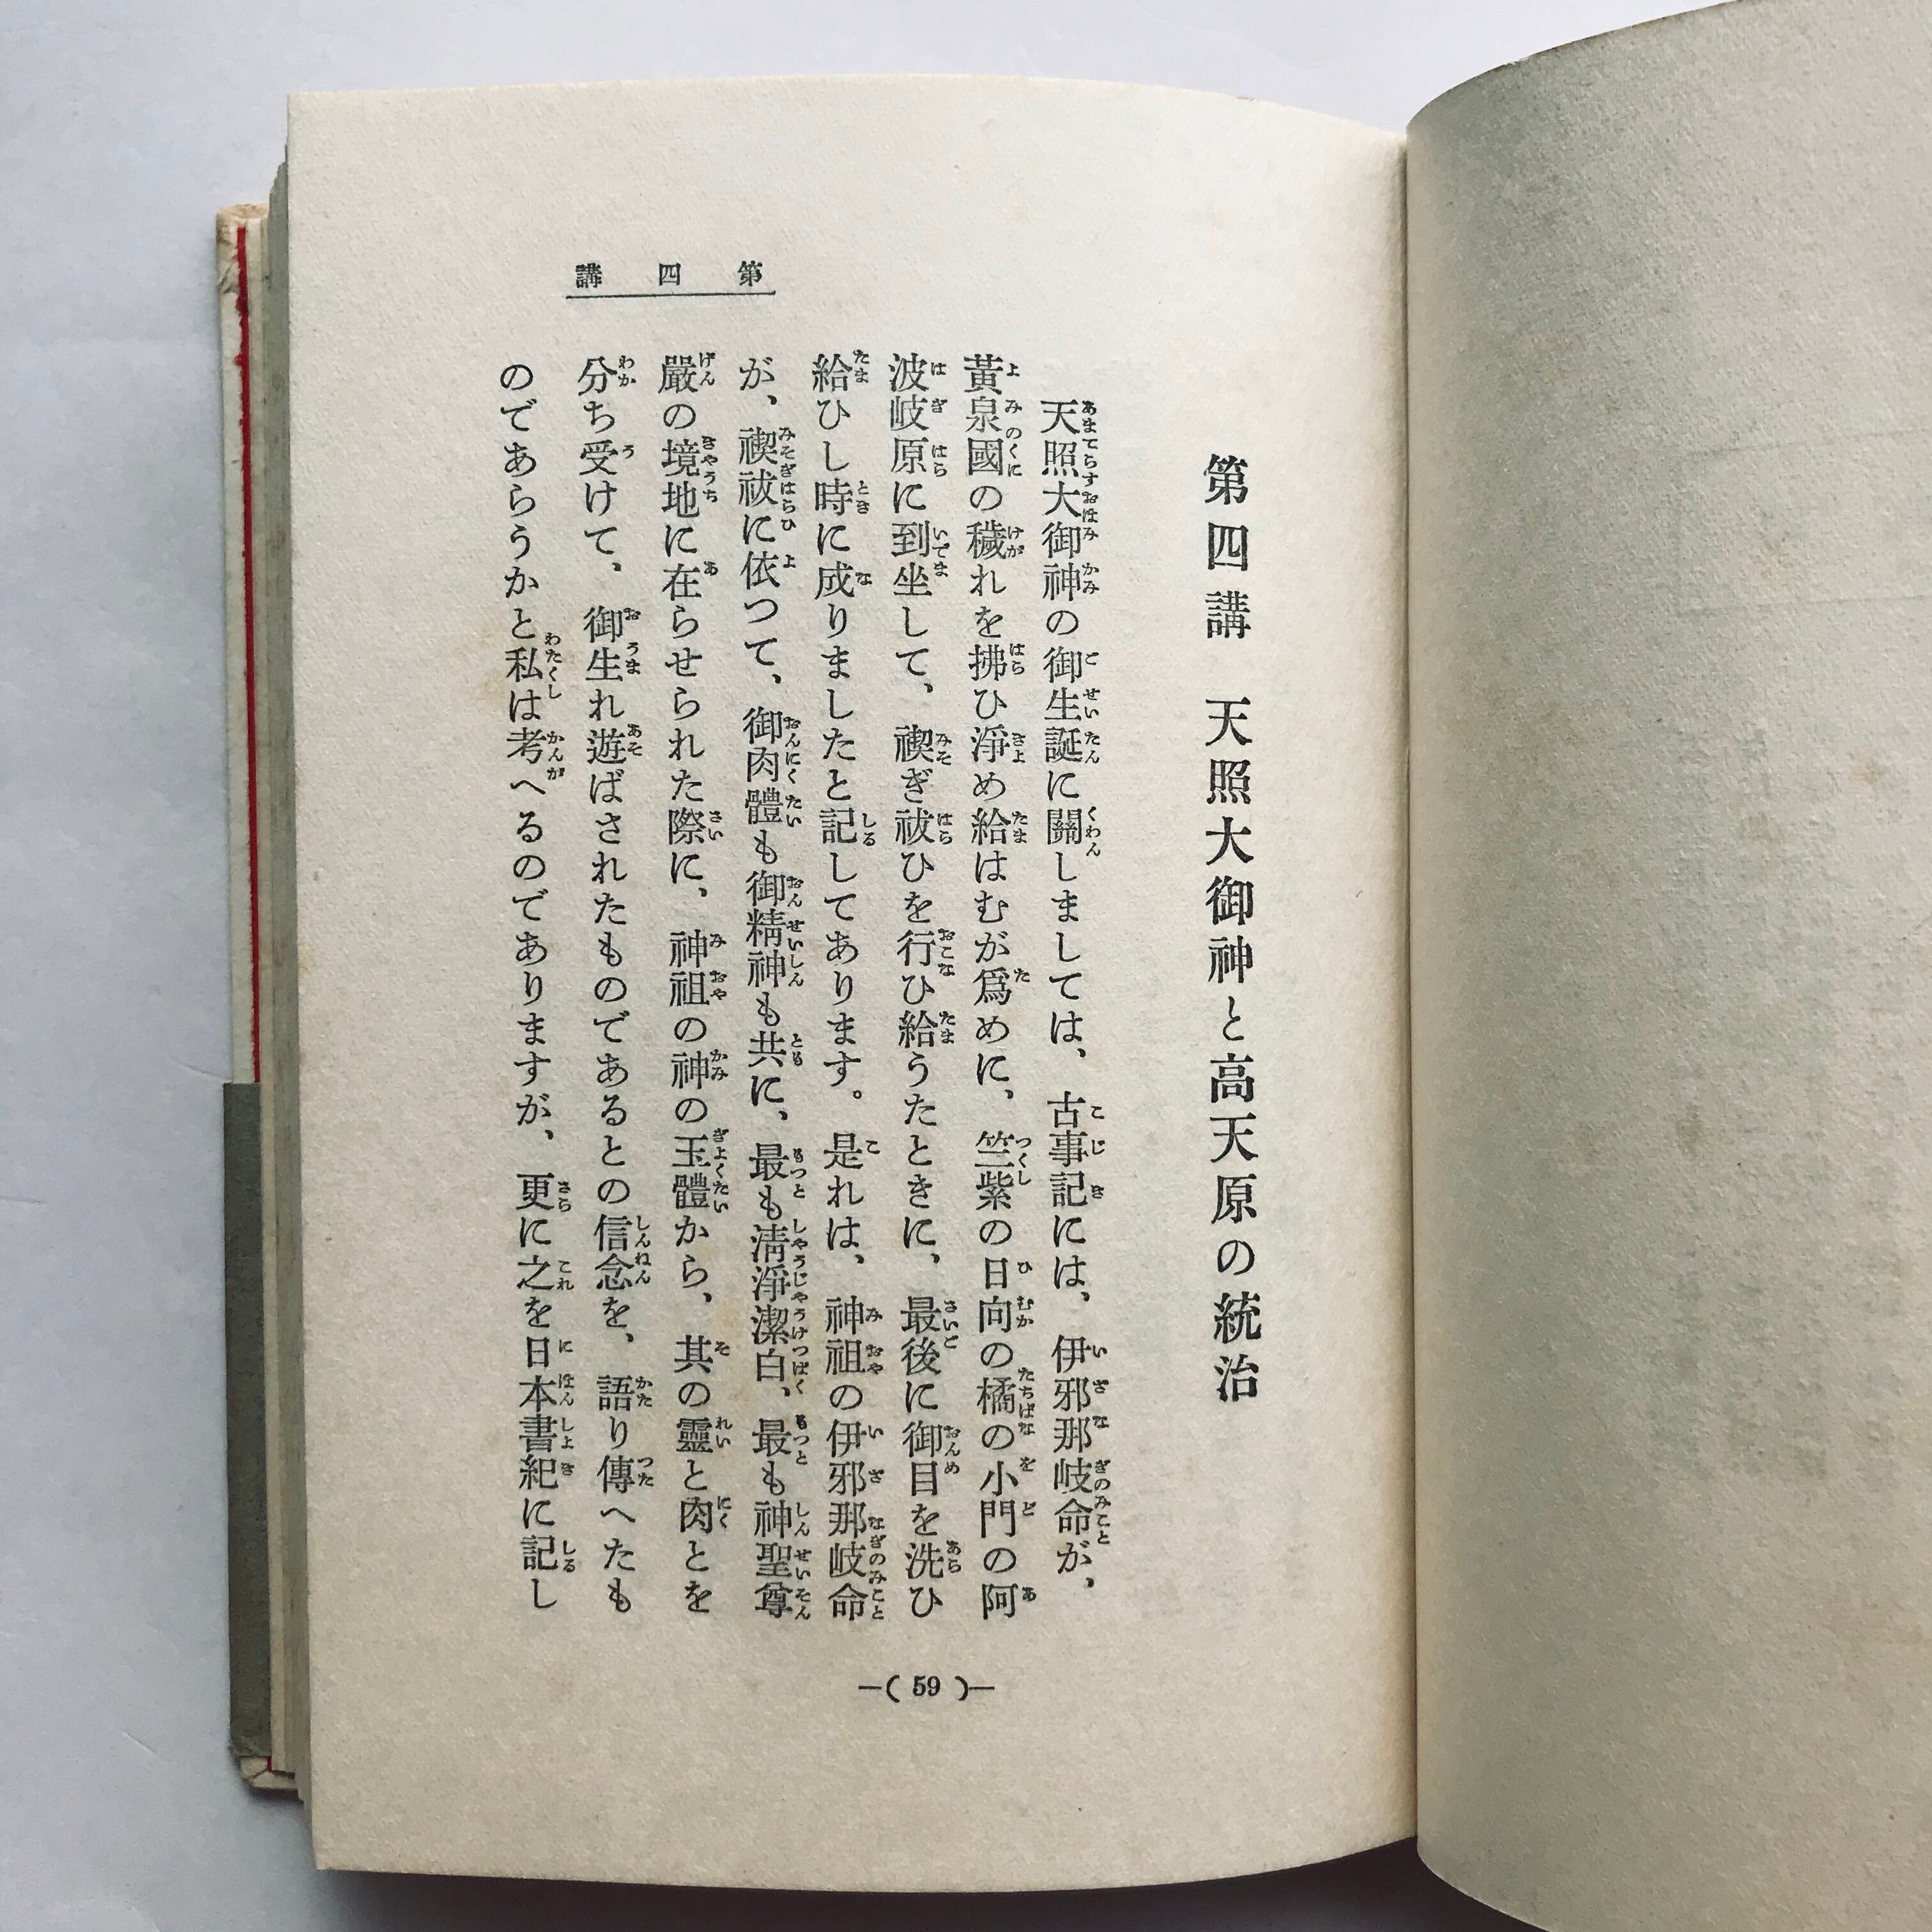 第四講
第四講　天照大御神と高天原の統治
天照大御神の御生誕に關しましては、古事記には、伊邪那岐命が、
黃泉國の穢れを拂ひ淨め給はむが爲めに、竺紫の日向の橘の小門の阿
波岐原に到坐して、禊ぎ祓ひを行ひ給うたときに、最後に御目を洗ひ
給ひし時に成りましたと記してあります。是れは、神祖の伊邪那岐命
が、禊祓に依つて、御肉體も御精神も共に、最も淸淨潔白、最も神聖尊
嚴の境地に在らせられた際に、神祖の神の玉體から、其の靈と肉とを
分ち受けて、御生れ遊ばされたものであるとの信念を、語り傳へたも
のであらうかと私は考へるのでありますが、更に之を日本書紀に記し
—( 59 )—